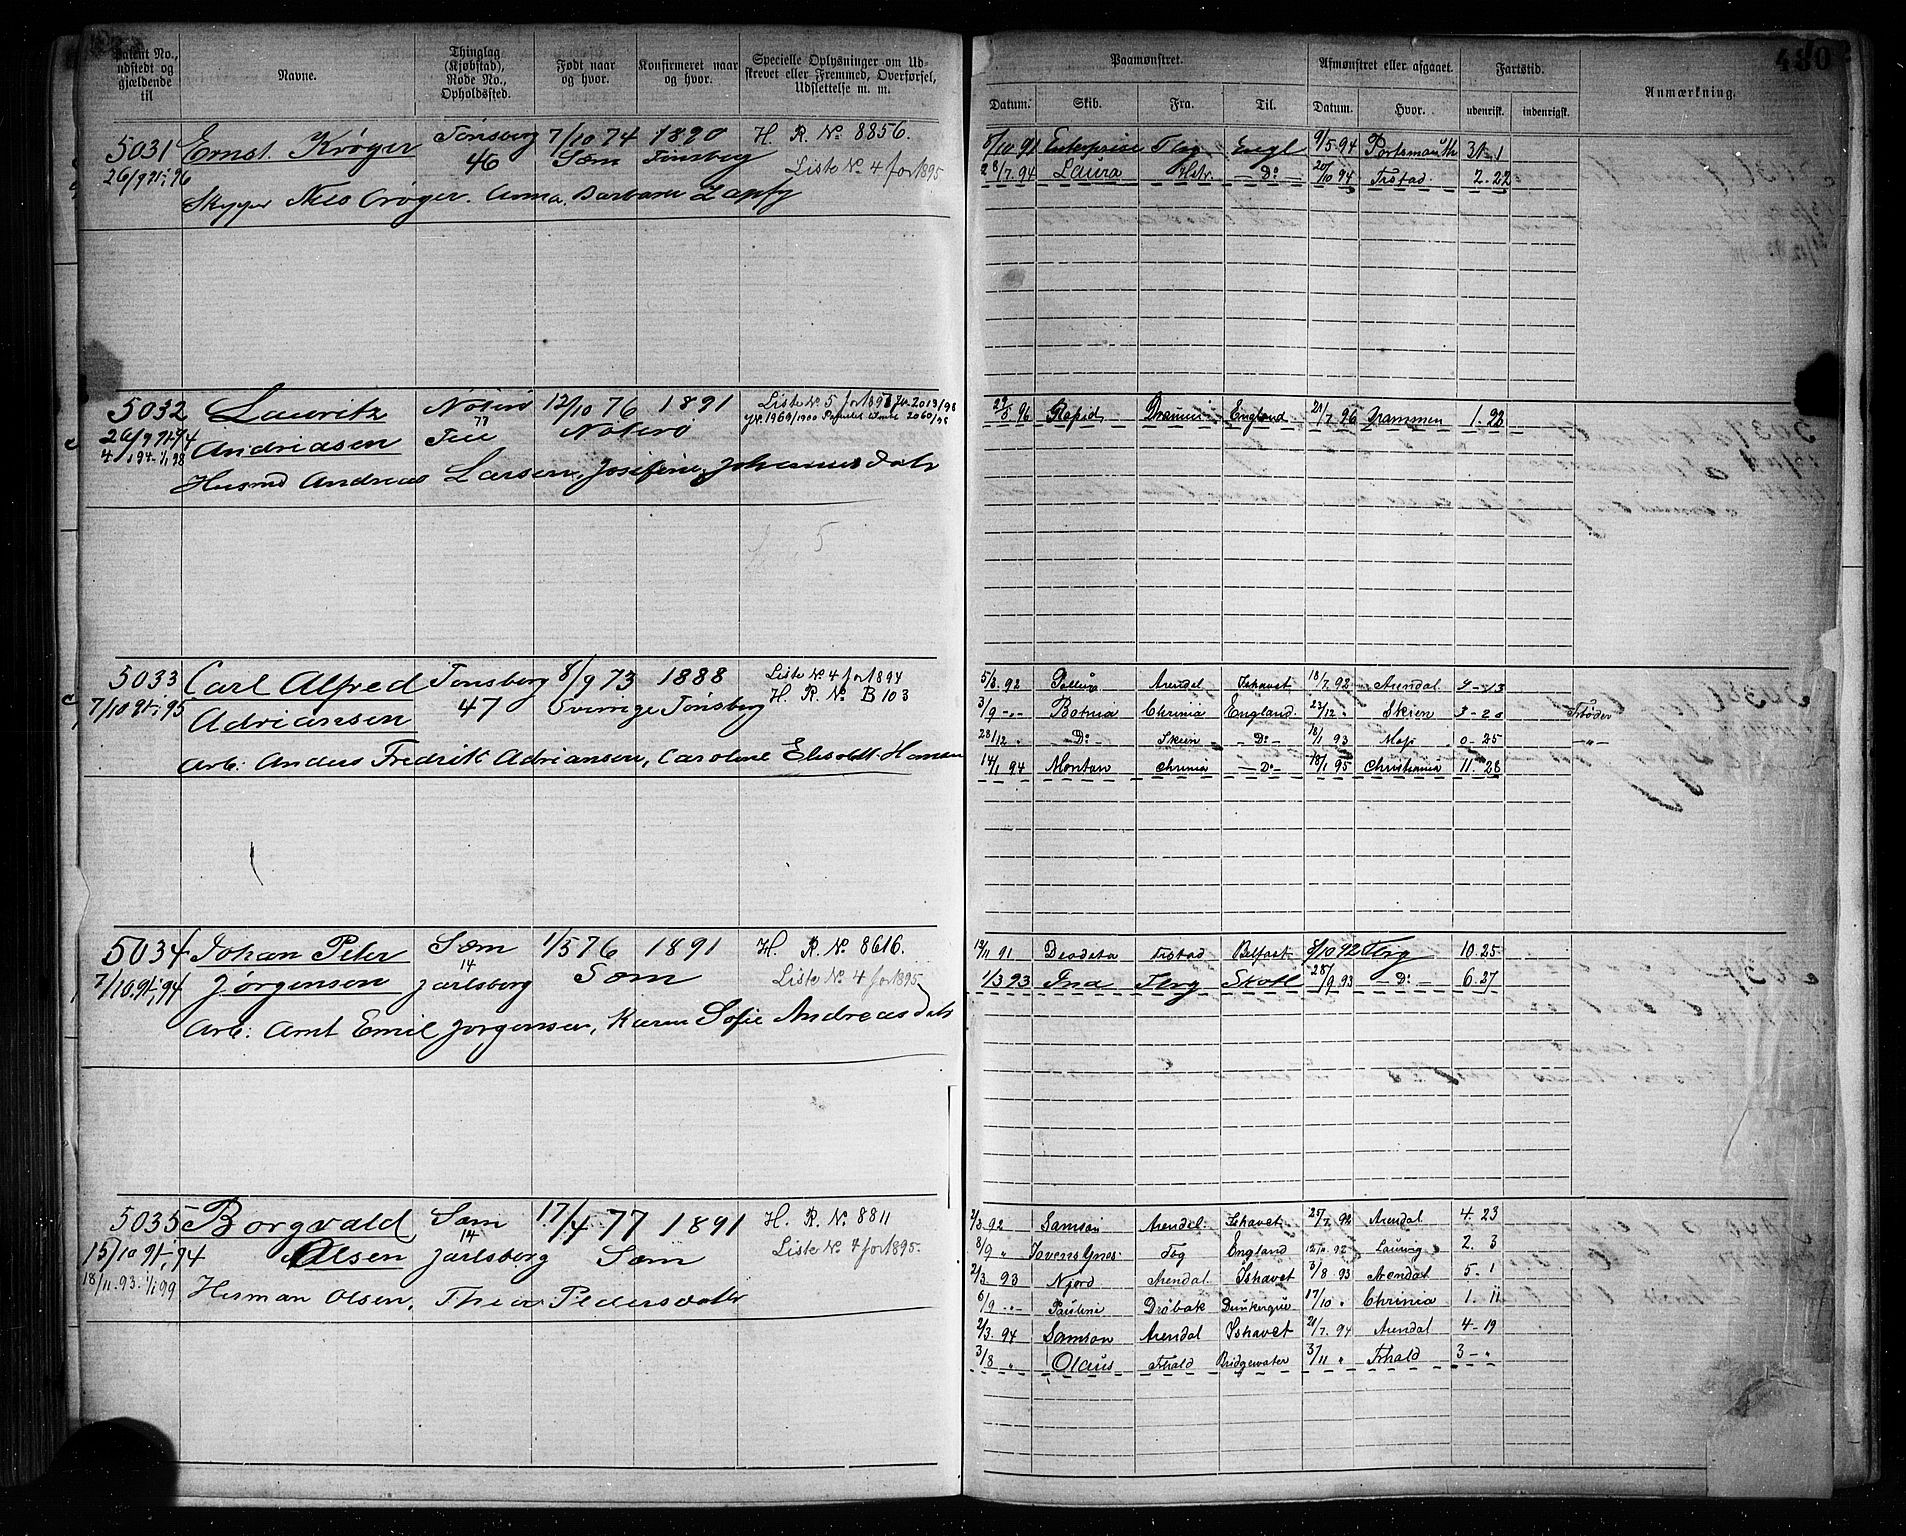 Patent No., udstedt og gjældende til
Navne.
Thinglag (Kjøbstad), Rode No., Opholdssted.
Født naar og hvor.
Konfirmeret naar og hvor.
Specielle Oplysninger om Udskrevet eller Fremmed, Overførsel, Udslettelse m. m.
480
Paamønstret.
Afmønstret eller afgaaet.
Fartstid.
Anmærkning.
Datum. Skib. Fra. Til. Datum. Hvor. udenrigst. indenrigst.
5031 Ernst Krøger Tønsberg 7/10 74 1890 H. R. No. 8856.
26/9 91-, 96 46 Sæm Tønsberg Liste No. 4 for 1895
Skipper Anna Barbara
8/10 91 Enterprise Engl 9/5 94 Portsmouth 31. 1
28/7. 94 Laura Do 20/10 94 Frstad. 2. 22
5032 Lauritz Nøterø 12/10 76 1891 Liste No. 5 for 1898
26/9 91-, 94 Andriasen 77 Nøterø
Husmd Andreas Larsen, Josefine Johannesdatr
96 Rapid England 96 Drammen 1. 22
5033 Carl Alfred Tønsberg 8/9 73 1888 Liste No. 4 for 1894
7/10 91-, 95 Adriansen 47 Sverrige Tønsberg H. R. No. B 103
Arb: Anders Fredrik Adriansen, Caroline Hansen
5/3. 92 Arendal Ishavet 18/7. 92 Arendal
3/9 -"- Botnia Chrinia England 23/12 " Skien 3-20
28/12 " Do Skien Do 18/1 93 0-25 -"-
14/1 94 Montan Chrinia Do 18/1 95 Christiania 11. 28
5034 Johan Peter Sæm 1/5 76 1891 H. R. No. 8616.
7/10. 91-, 94 Jørgensen 14 Jarlsberg Sæm Liste No. 4 for 1895
Arb: Arnt Emil Jørgensen, Karen Sofie Andreasdatr
91 Deodata Frstad Belfast 8/10 92 10. 25
1/3 93 Ina Skotl 28/9 93 Do 6. 27
5035 Borgvald Sæm 17/4 77 1891 H. R. No. 8811
15/10 91-, 94 Olsen 14 Jarlsberg Sæm Liste No. 4 for 1895.
18/11. 93. 1/1 99 Herman Olsen, Thea Pedersdatr
2/3. 92 Samson Arendal Ishavet 27/7. 92 Arendal 4. 23
8/9 " England 92 Laurvig 2. 3
2/3. 93 Njord Arendal. Ishavet 3/8 93 Arendal 5. 1
6/9 -"- Pauline Drøbak Dunkerque 17/10 " Chrinia 1. 11
2/3. 94 Samson Arendal Ishavet 21/7. 94 Arendal 4-19
3/8 " Olaus Frhald Bridgewater 3/11 " Frhald 3 - "